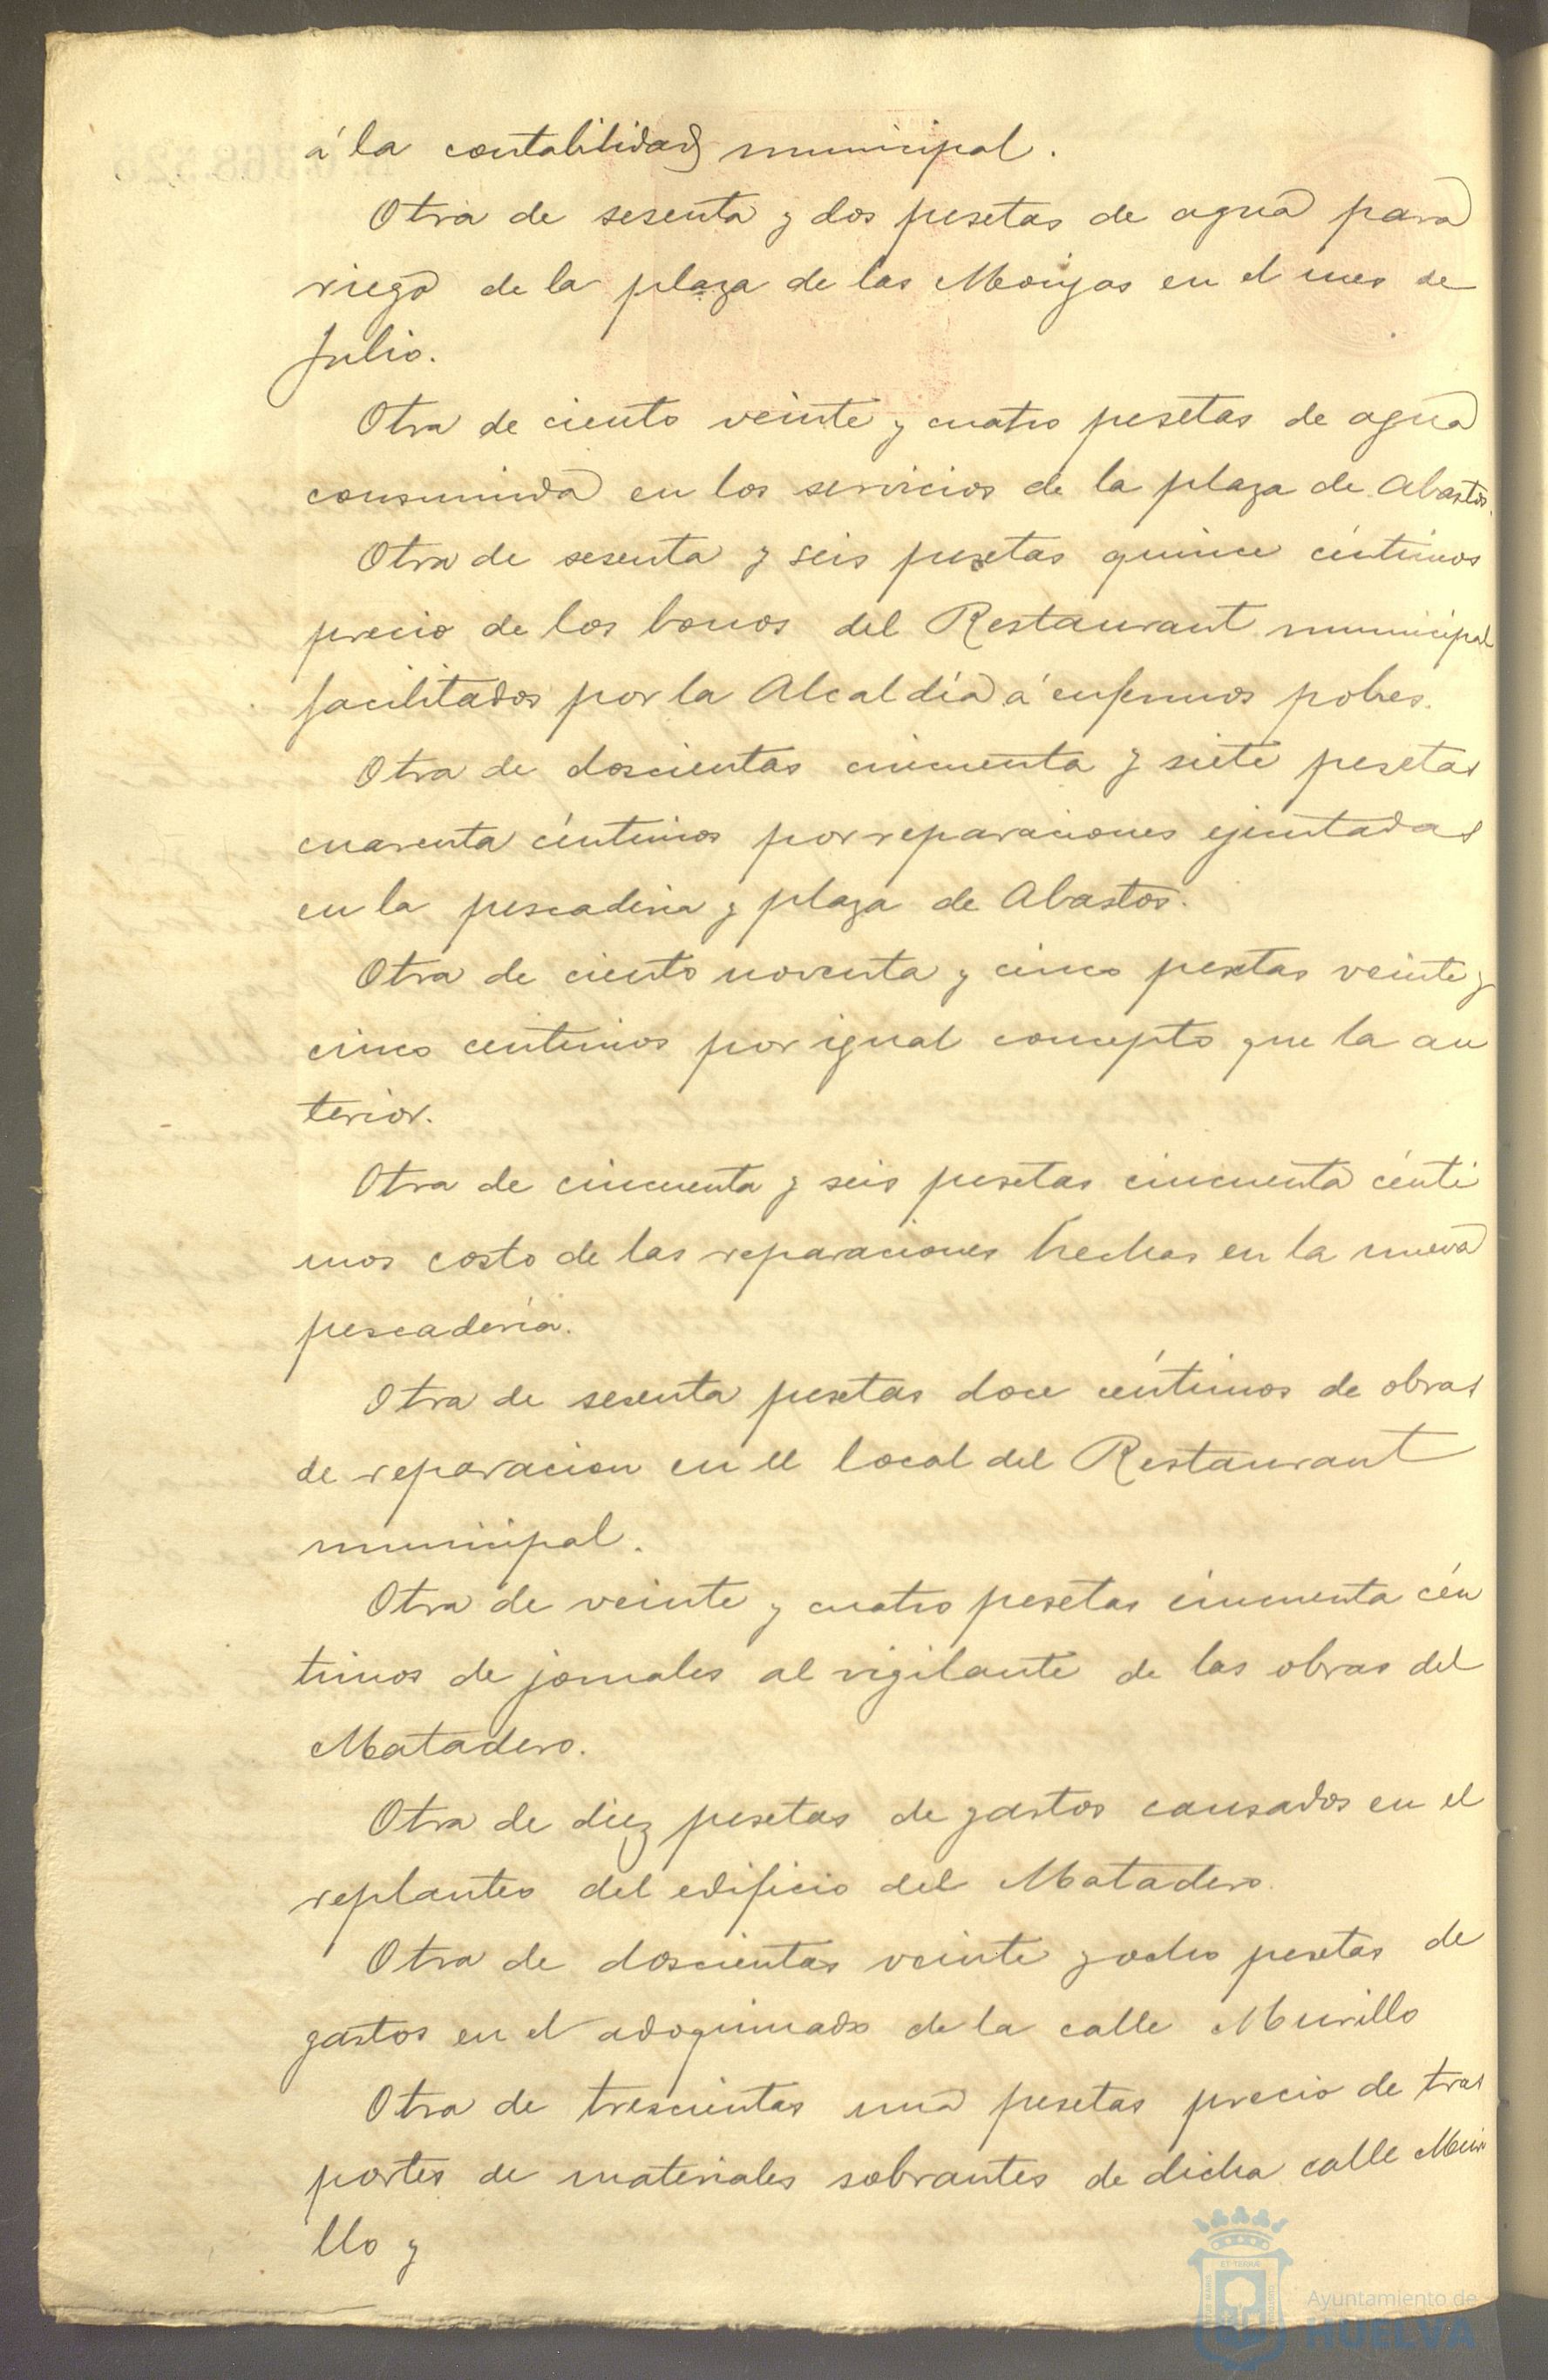 á la contabilidad municipal.
Otra de sesenta y dos pesetas de agua para
riego de la plaza de las Monjas en el mes de
Julio.
Otra de ciento veinte y cuatro pesetas de agua
consumida en los servicios de la plaza de Abastos.
Otra de sesenta y seis pesetas quince céntimos
precio de los bonos del Restaurant municipal
facilitados por la Alcaldía á enfermos pobres.
Otra de doscientas cincuenta y siete pesetas
cuarenta céntimos por reparaciones ejecutadas
en la pescaderia y plaza de Abastos.
Otra de ciento noventa y cinco pesetas veinte y
cinco centimos por igual concepto que la an
terior.
Otra de cincuenta y seis pesetas cincuenta cénti
mos costo de las reparaciones hechas en la nueva
pescadería.
Otra de sesenta pesetas doce céntimos de obras
de reparacion en el local del Restaurant
municipal.
Otra de veinte y cuatro pesetas cincuenta cén
timos de jornales al vigilante de las obras del
Matadero.
Otra de diez pesetas de gastos causados en el
replanteo del edificio del Matadero.
Otra de doscientas veinte y ocho pesetas de
gastos en el adoquinado de la calle Murillo
Otra de trescientas una pesetas precio de tras
portes de materiales sobrantes de dicha calle Muri
llo y
Ayuntamiento de
HUELVA